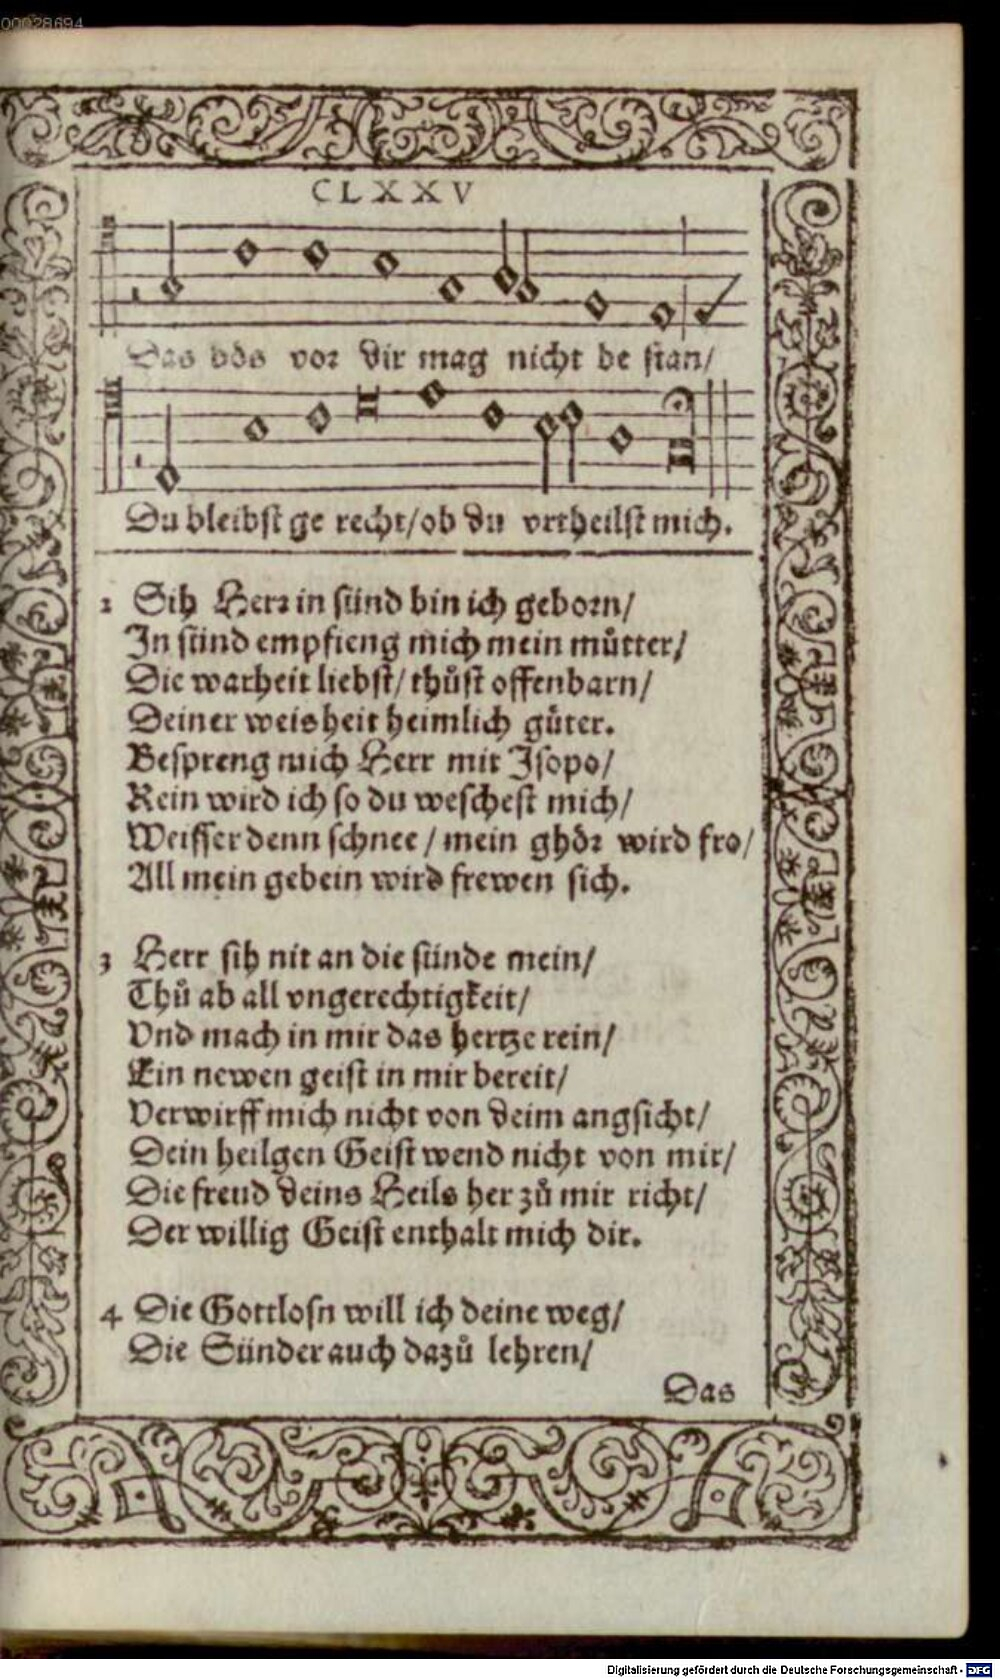 00028694
CLXXV
Das bös vor dir mag nicht be stan/
Du bleibst ge recht/ob du vrtheilst mich.
2 Sih Herr in sünd bin ich geborn/
In sünd empfieng mich mein můtter/
Die warheit liebst/thůst offenbarn/
Deiner weisheit heimlich gůter.
Bespreng mich Herr mit Isopo/
Rein wird ich so du weschest mich/
Weisser denn schnee/mein ghör wird fro/
All mein gebein wird frewen sich.
3 Herr sih nit an die sünde mein/
Thů ab all vngerechtigkeit/
Vnd mach in mir das hertze rein/
Ein newen geist in mir bereit/
Verwirff mich nicht von deim angsicht/
Dein heilgen Geist wend nicht von mir/
Die freud deins Heils her zů mir richt/
Der willig Geist enthalt mich dir.
4 Die Gottlosn will ich deine weg/
Die Sünder auch dazů lehren/
Das
Digitalisierung gefördert durch die Deutsche Forschungsgemeinschaft - DFG